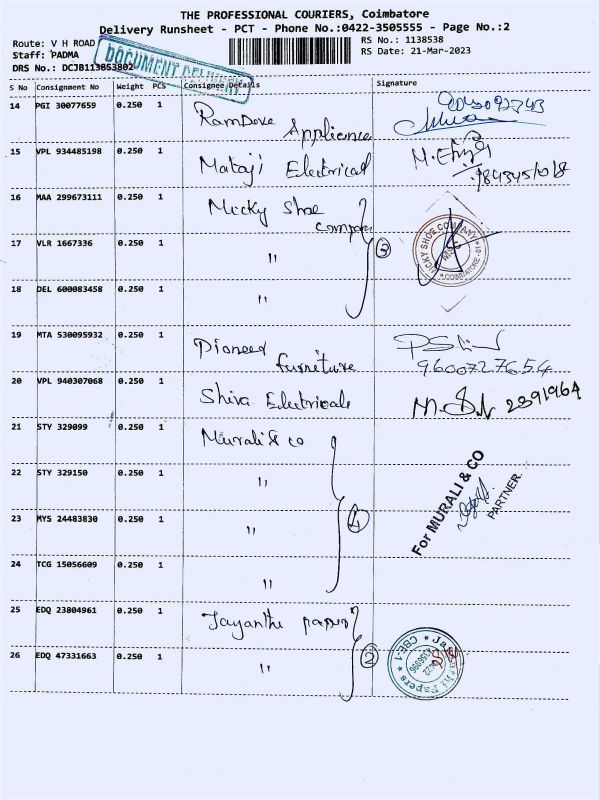 THE PROFESSIONAL COURIERS, Coimbatore
Delivery Runsheet - PCT - Phone No.:0422-3505555 - Page No.:2
Route: V H ROAD
RS No.: 1138538
Staff: PADMA
RS Date: 21-Mar-2023
DRS No.: DCJB113853802
DOCUMENT DELIVERY
S No Consignment No Weight PCS Consignee Details Signature
14 PGI 30077659 0.250 1 Ramdeve Applience
15 VPL 934485198 0.250 1 Mataji Electrical
16 MAA 299673111 0.250 1 Mucky Shoe company
17 VLR 1667336 0.250 1 "
3
LUCKY SHOE COMPANY
COIMBATORE
18 DEL 600083458 0.250 1 "
19 MTA 530095932 0.250 1 Pioneer furniture
9600727654
20 VPL 940307068 0.250 1 Shiva Electricals
2391964
21 STY 329099 0.250 1 Murali & co
22 STY 329150 0.250 1 "
For MURALI & CO
PARTNER.
23 MYS 24483830 0.250 1 "
4
24 TCG 15056609 0.250 1 "
25 EDQ 23804961 0.250 1 Jayanthi papers
26 EDQ 47331663 0.250 1 "
2
Papers
CBE-1